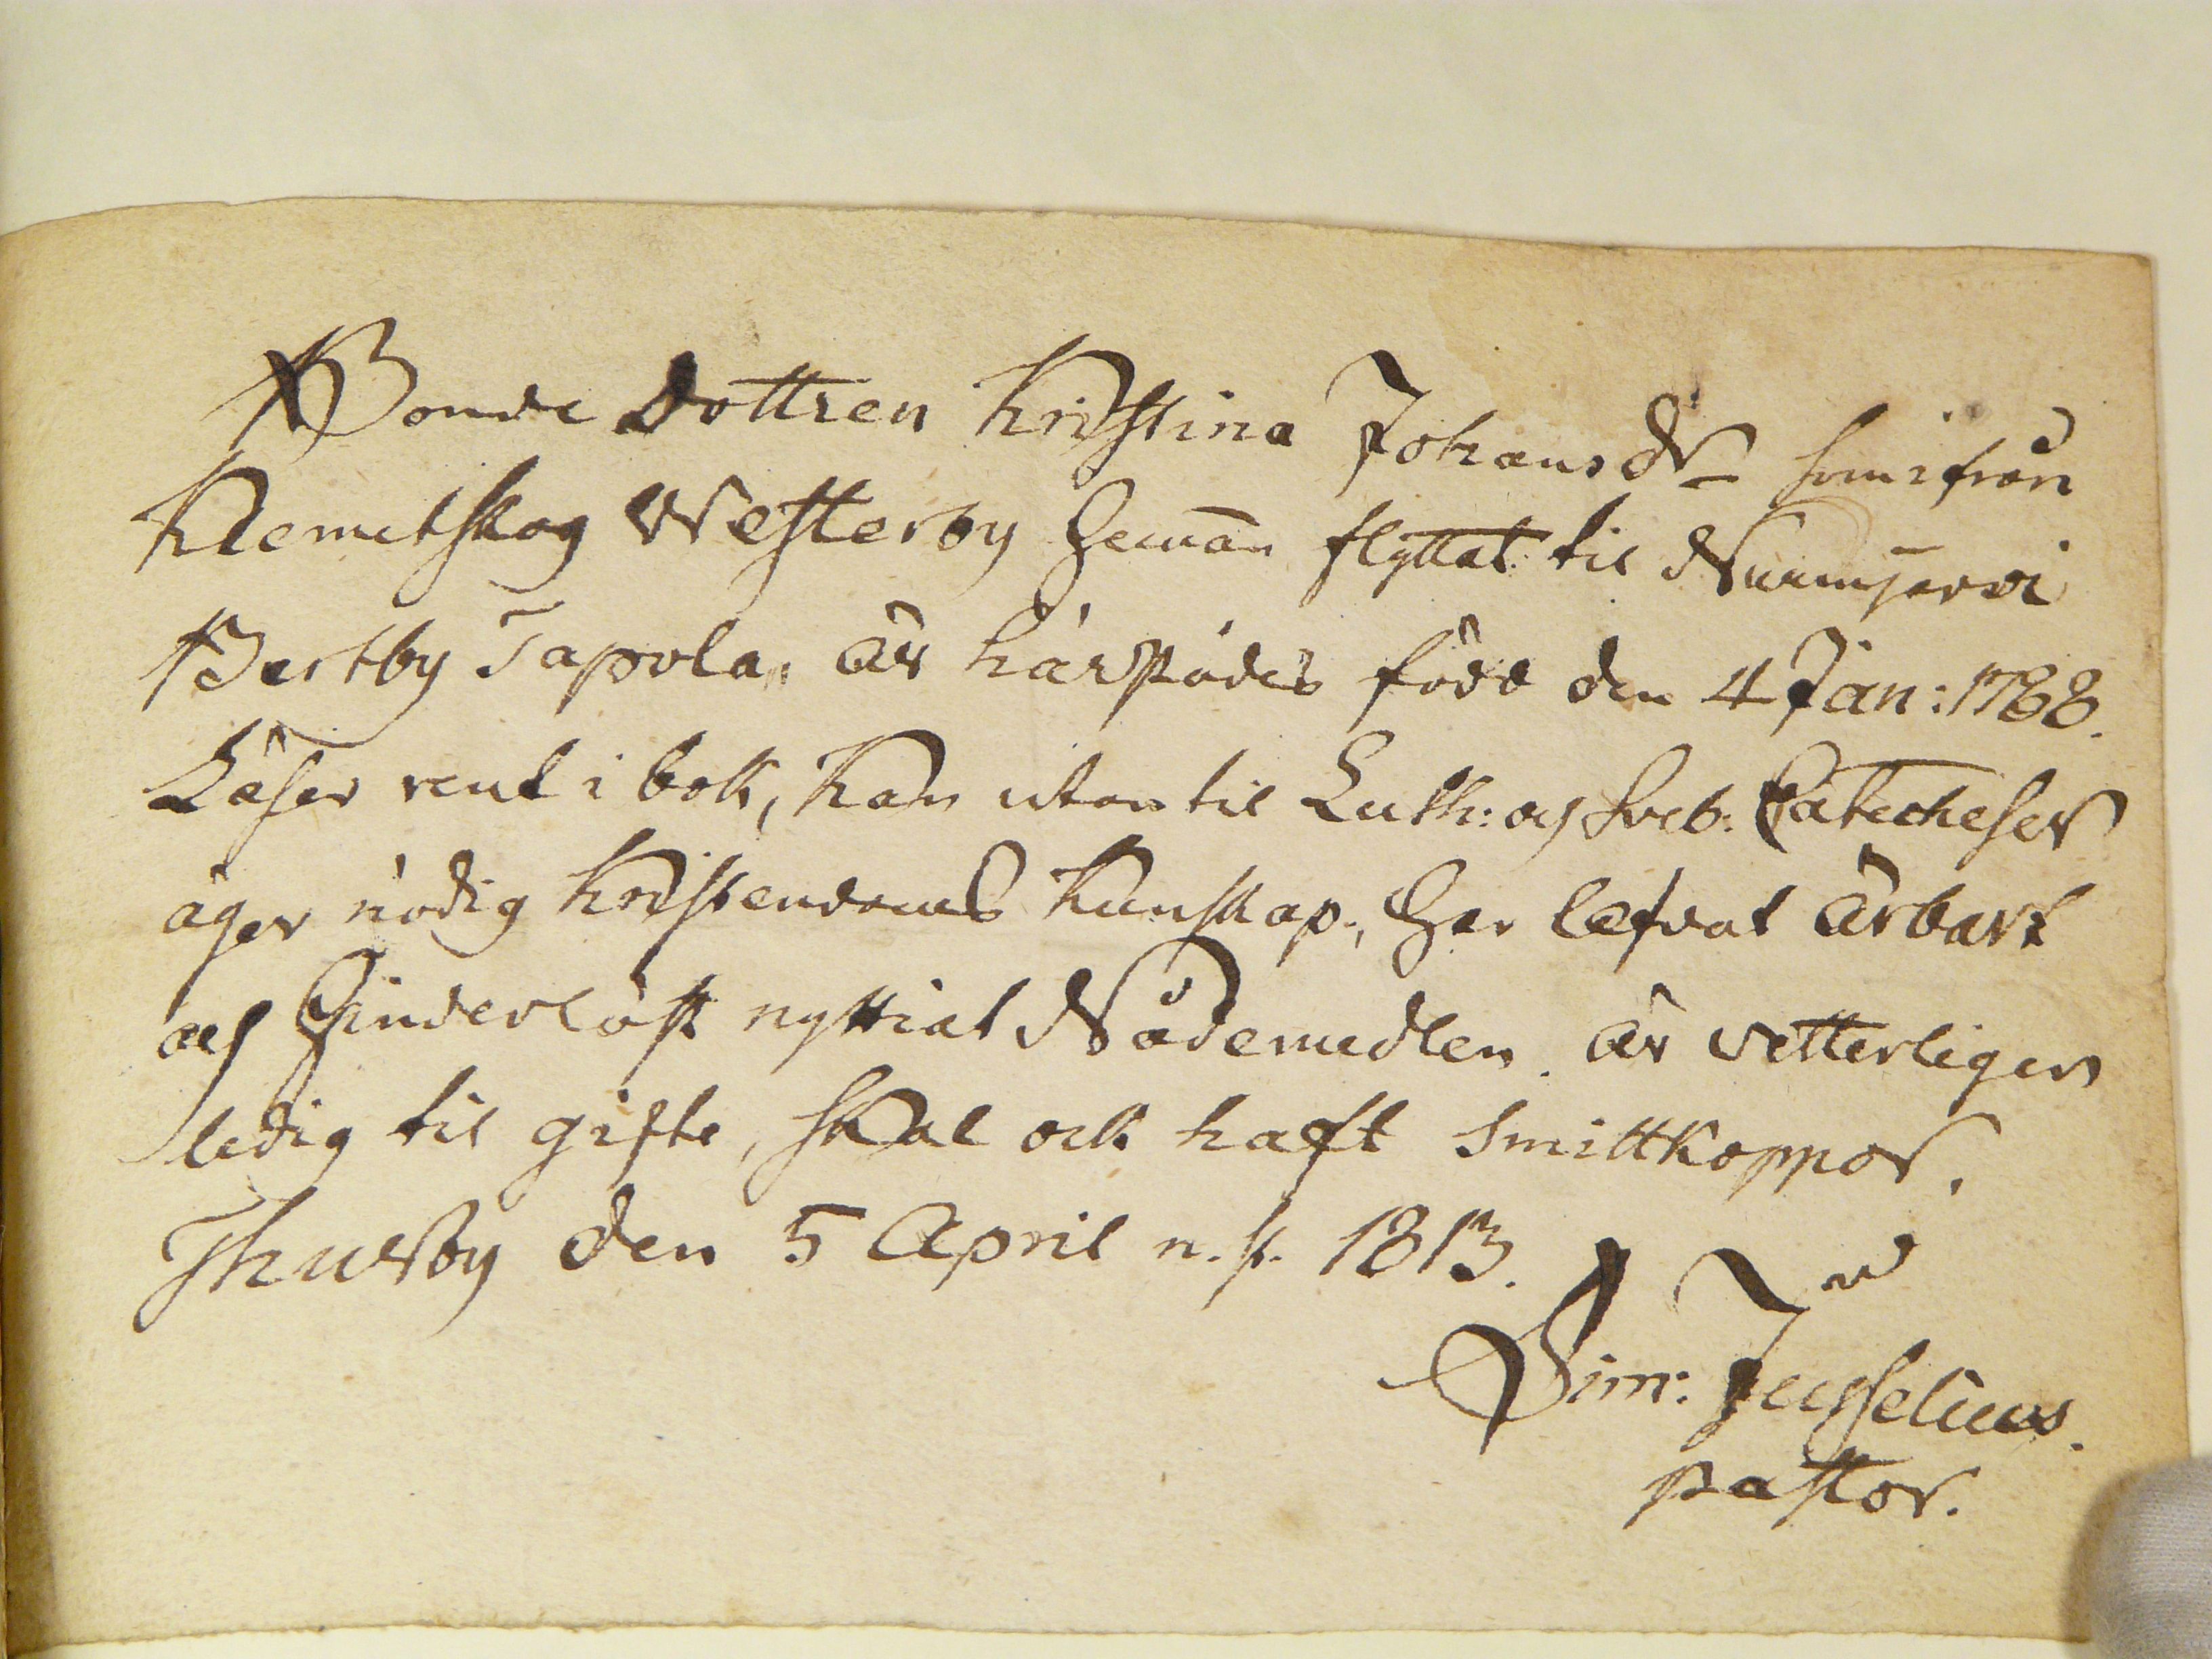 Bonde Dottren Kristina Johans Dr som ifrån
Klemetskog Westerby Heman flyttat til Nurmijervi
Bertby Tapola, är härstädes född den 4 Jan: 1788.
Läser rent i bok, kan utan til Luth: och Sveb: Catecheser
äger nödig kristendoms kunskap, har lefvat ärbart
och hinderlöst nyttiat Nådemedlen. är vetterligen
ledig til gifte, skal ock haft smittkoppor.
Thusby den 5 April n. st. 1813.
Sim:
pastor.